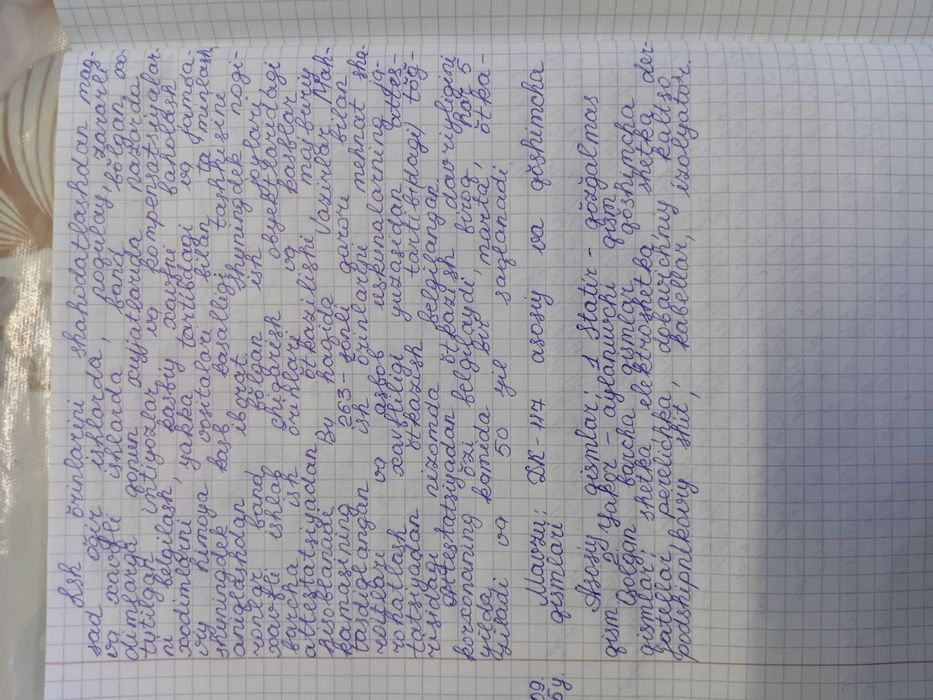 Ish o'rinlarini shahodatlashdan maq-
sad og'ir ishlarda, nogulay, zararli
va xavfli ishlarda band bo'lgan xo-
dimlarga qonun xujjatlarida nazarda
tutilgan imtiyozlar va kompensatsiyalar-
ni bilgilash, kasbiy xavfni baholash
xodimlarni yakka tartibdagi va jamoa-
viy himoya vositalari bilan ta'minlash
shuningdek kasb kasalligi tashxisini
aniqlashdan iborat. Shuningdek nogi-
ronlar band bo'lgan ish joylari,
xavfli ishlab chiqarish obyektlaridagi
barcha ish o'rinlari va kasblar
attestatsiyadan o'tkazilishi majburiy
hisoblanadi. Bu haqida Vazirlar Mah-
kamasining 263-sonli qarori bilan
tasdiqlangan ish o'rinlarini mehnat sha-
roitlari va asbob uskunalarning ja-
rohatlash xavfliligi yuzasidan attes-
tatsiyadan o'tkazish tartibidagi tog'-
risidagi nizomda belgilangan.
Attestatsiyadan o'tkazish davriyligini
korxonaning o'zi belgilaydi, biroq har 5
yilda kamida bir marta, o'tka-
ziladi va 50 yil saqlanadi
Mavzu: DK-117 asosiy va qo'shimcha
qismlari
Asosiy qismlari, 1 statir - qo'zg'almas
qism yakor - aylanuvchi qism
Qolgan barcha qismlar qo'shimcha
qismlar shetka elektroshotka shetka der-
jatellar perelichka dobavichniy kalso
podshipnikoviy shit, kabellar, izolyator.
09.
5y.